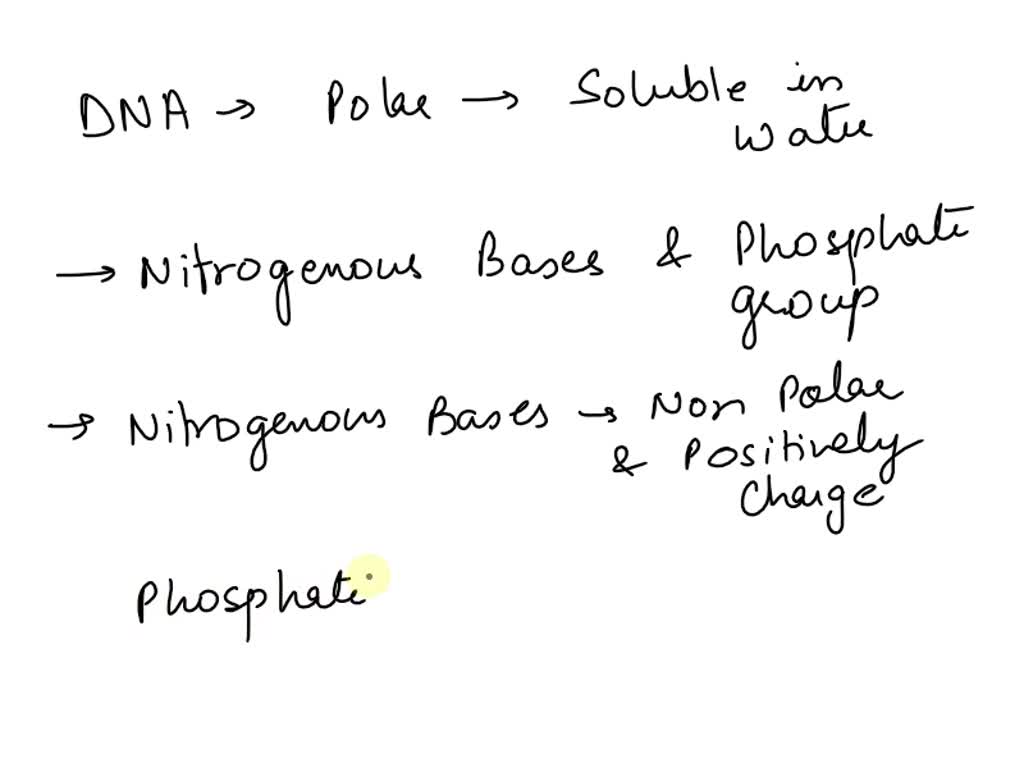 DNA → Polar → Soluble in
water
→ Nitrogenous Bases & Phosphate
group
→ Nitrogenous Bases → Non Polar
& Positively
Charge
Phosphate